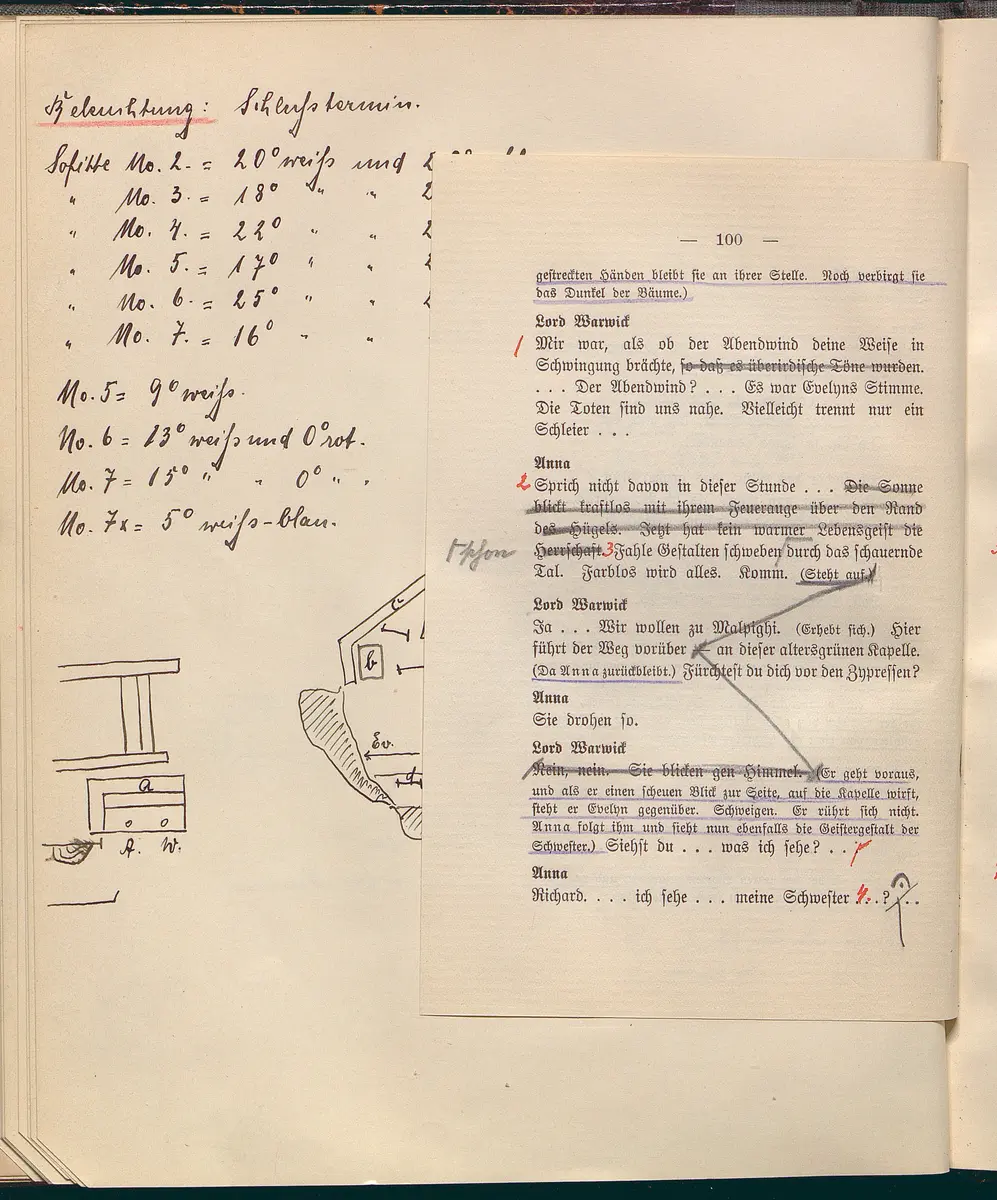 Beleuchtung: Schlusstermin.
Sofitte No. 2. = 20° weiß und 2
" No. 3. = 18° " " 2
" No. 4. = 22° " " 2
" No. 5. = 17° " " 2
" No. 6. = 25° " " 2
" No. 7. = 16° " "
No. 5 = 9° weiß.
No. 6 = 13° weiß und 0° rot.
No. 7 = 15° " " 0° " "
No. 7x = 5° weiß-blau.
c
b
Ev.
d
a
A. W.
— 100 —
gestreckten Händen bleibt sie an ihrer Stelle. Noch verbirgt sie
das Dunkel der Bäume.)
Lord Warwick
1 Mir war, als ob der Abendwind deine Weise in
Schwingung brächte, so daß es überirdische Töne wurden.
. . . Der Abendwind? . . . Es war Evelyns Stimme.
Die Toten sind uns nahe. Vielleicht trennt nur ein
Schleier . . .
Anna
2 Sprich nicht davon in dieser Stunde . . . Die Sonne
blickt kraftlos mit ihrem Feuerauge über den Rand
des Hügels. Jetzt hat kein warmer Lebensgeist die
Herrschaft. 3 Fahle Gestalten schweben durch das schauernde
Tal. Farblos wird alles. Komm. (Steht auf.)
Lord Warwick
Ja . . . Wir wollen zu Malpighi. (Erhebt sich.) Hier
führt der Weg vorüber — an dieser altersgrünen Kapelle.
(Da Anna zurückbleibt.) Fürchtest du dich vor den Zypressen?
Anna
Sie drohen so.
Lord Warwick
Nein, nein. Sie blicken gen Himmel. (Er geht voraus,
und als er einen scheuen Blick zur Seite, auf die Kapelle wirft,
steht er Evelyn gegenüber. Schweigen. Er rührt sich nicht.
Anna folgt ihm und sieht nun ebenfalls die Geistergestalt der
Schwester.) Siehst du . . . was ich sehe? . . .
Anna
Richard. . . . ich sehe . . . meine Schwester 4. . . ? . . .